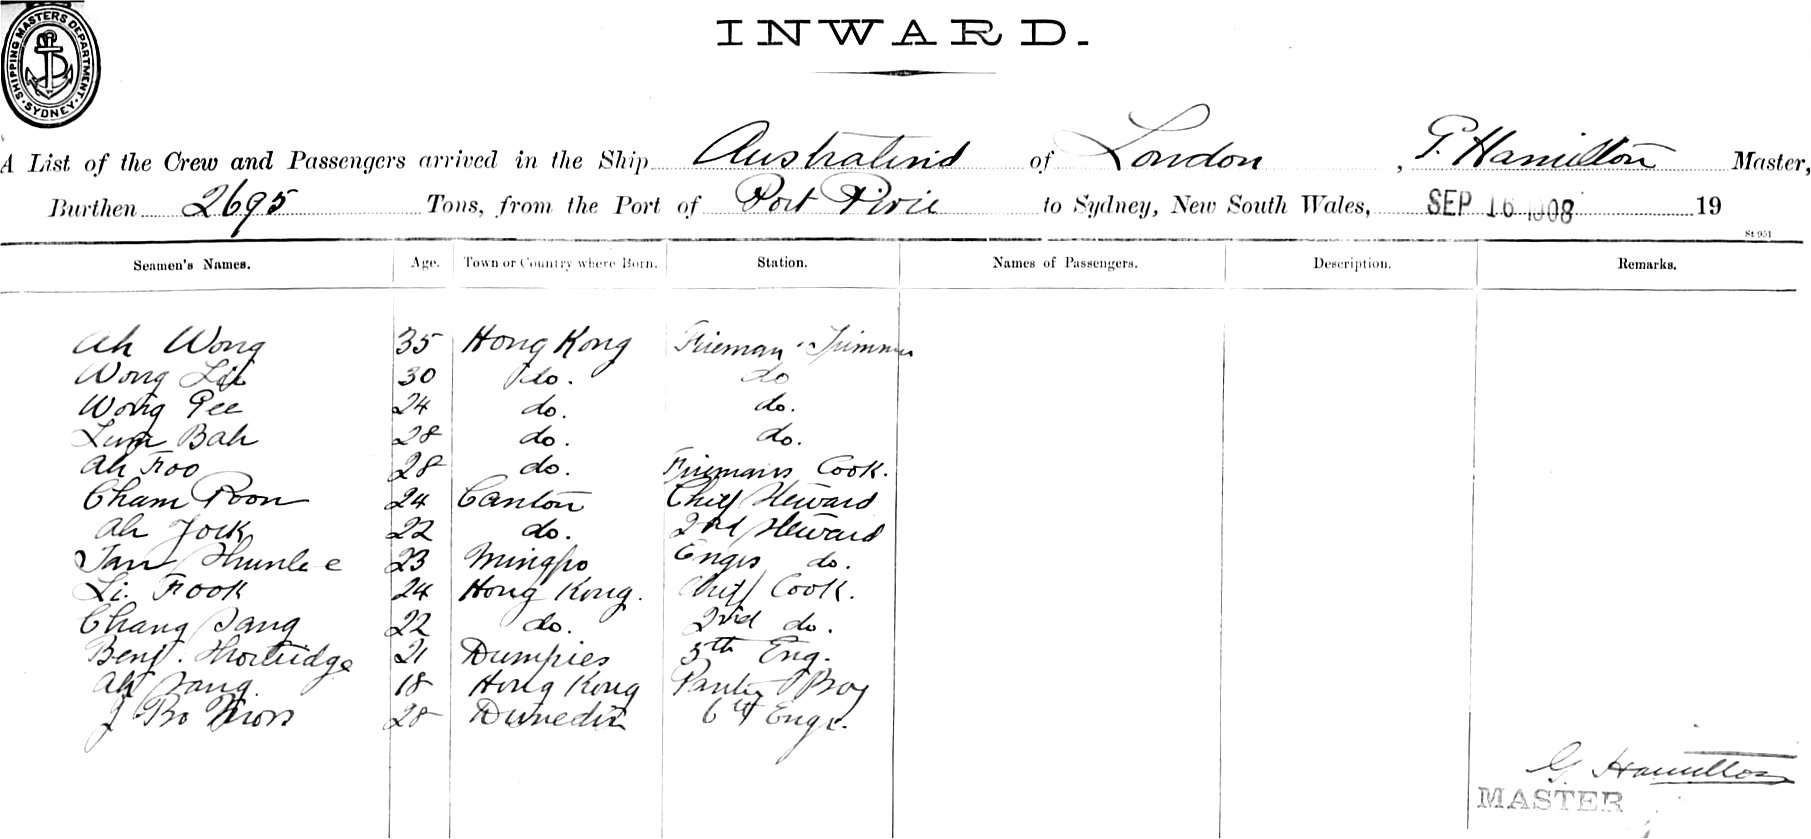 SHIPPING MASTERS DEPARTMENT. SYDNEY.
INWARD.
A List of the Crew and Passengers arrived in the Ship Australind of London, G. Hamilton Master,
Burthen 2695 Tons, from the Port of Port Pirie to Sydney, New South Wales, SEP 16 1908 19
St 951
Seamen's Names. Age. Town or Country where Born. Station. Names of Passengers. Description. Remarks.
Ah Wong 35 Hong Kong Fireman & Trimmer
Wong 30 do. do
Wong Pee 24 do. do.
Lum Bah 28 do. do.
Ah Foo 28 do. Firemans Cook.
Cham Poon 24 Canton Chief Steward
Ah Jock 22 do. 2nd Steward
23 Ningpo Engrs do.
Li Fook 24 Hong Kong. Chief Cook.
Chang Sang 22 do. 2nd do.
Benj. Shortridge 21 Dumfries 5th Eng.
Ah Sang. 18 Hong Kong Pantry Boy
J 28 Dunedin 6th Engr.
G. Hamilton
MASTER